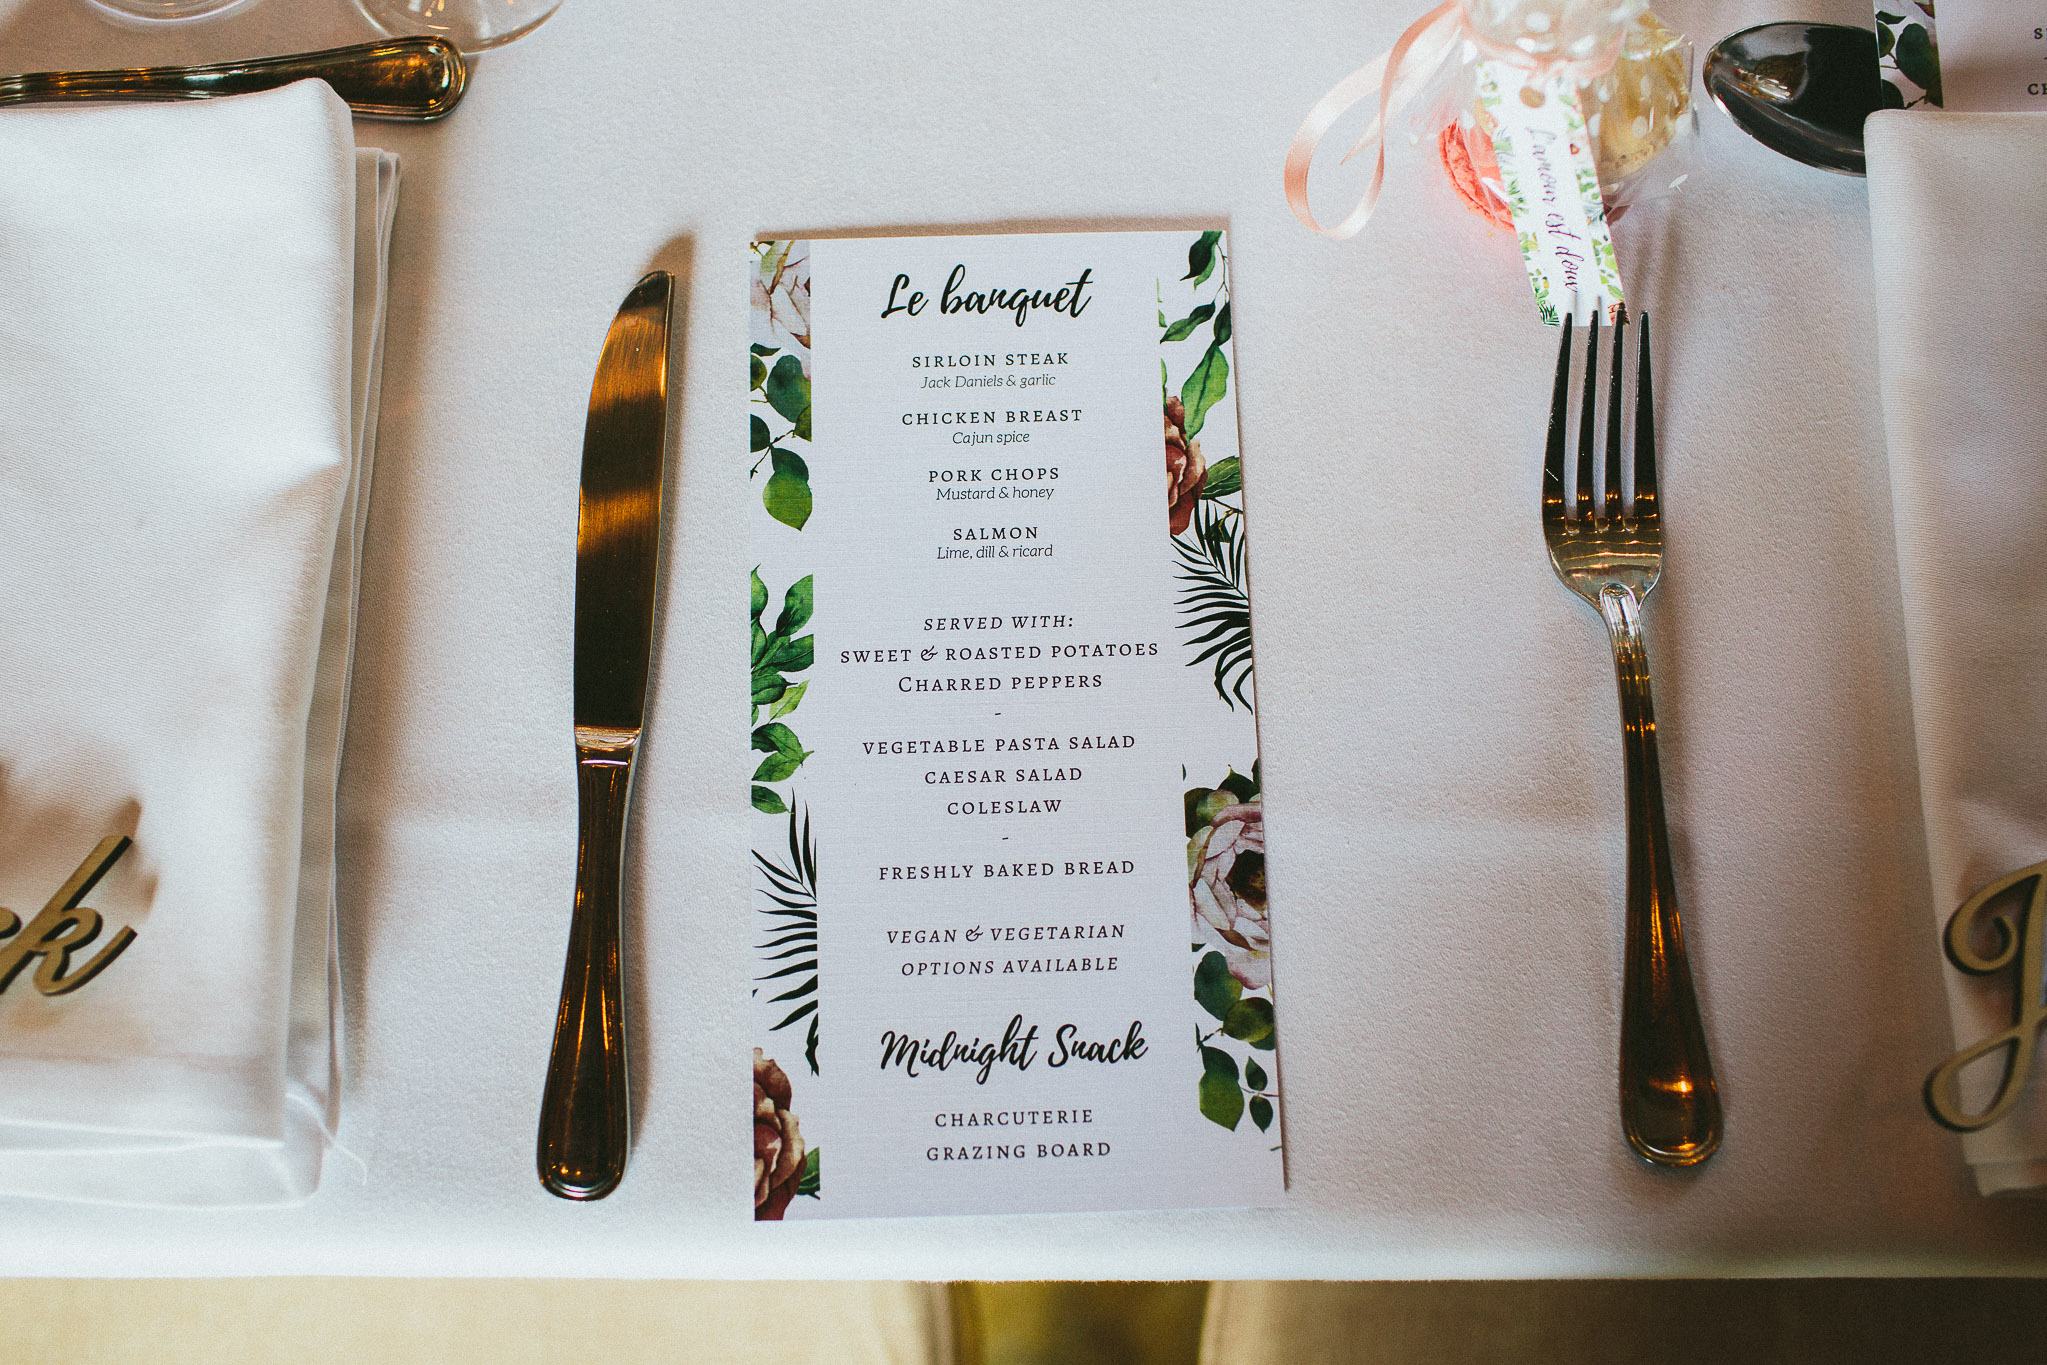 Le banquet
SIRLOIN STEAK
Jack Daniels & garlic
CHICKEN BREAST
Cajun spice
PORK CHOPS
Mustard & honey
SALMON
Lime, dill & ricard
SERVED WITH:
SWEET & ROASTED POTATOES
CHARRED PEPPERS
-
VEGETABLE PASTA SALAD
CAESAR SALAD
COLESLAW
-
FRESHLY BAKED BREAD
VEGAN & VEGETARIAN
OPTIONS AVAILABLE
Midnight Snack
CHARCUTERIE
GRAZING BOARD
L'amour est doux